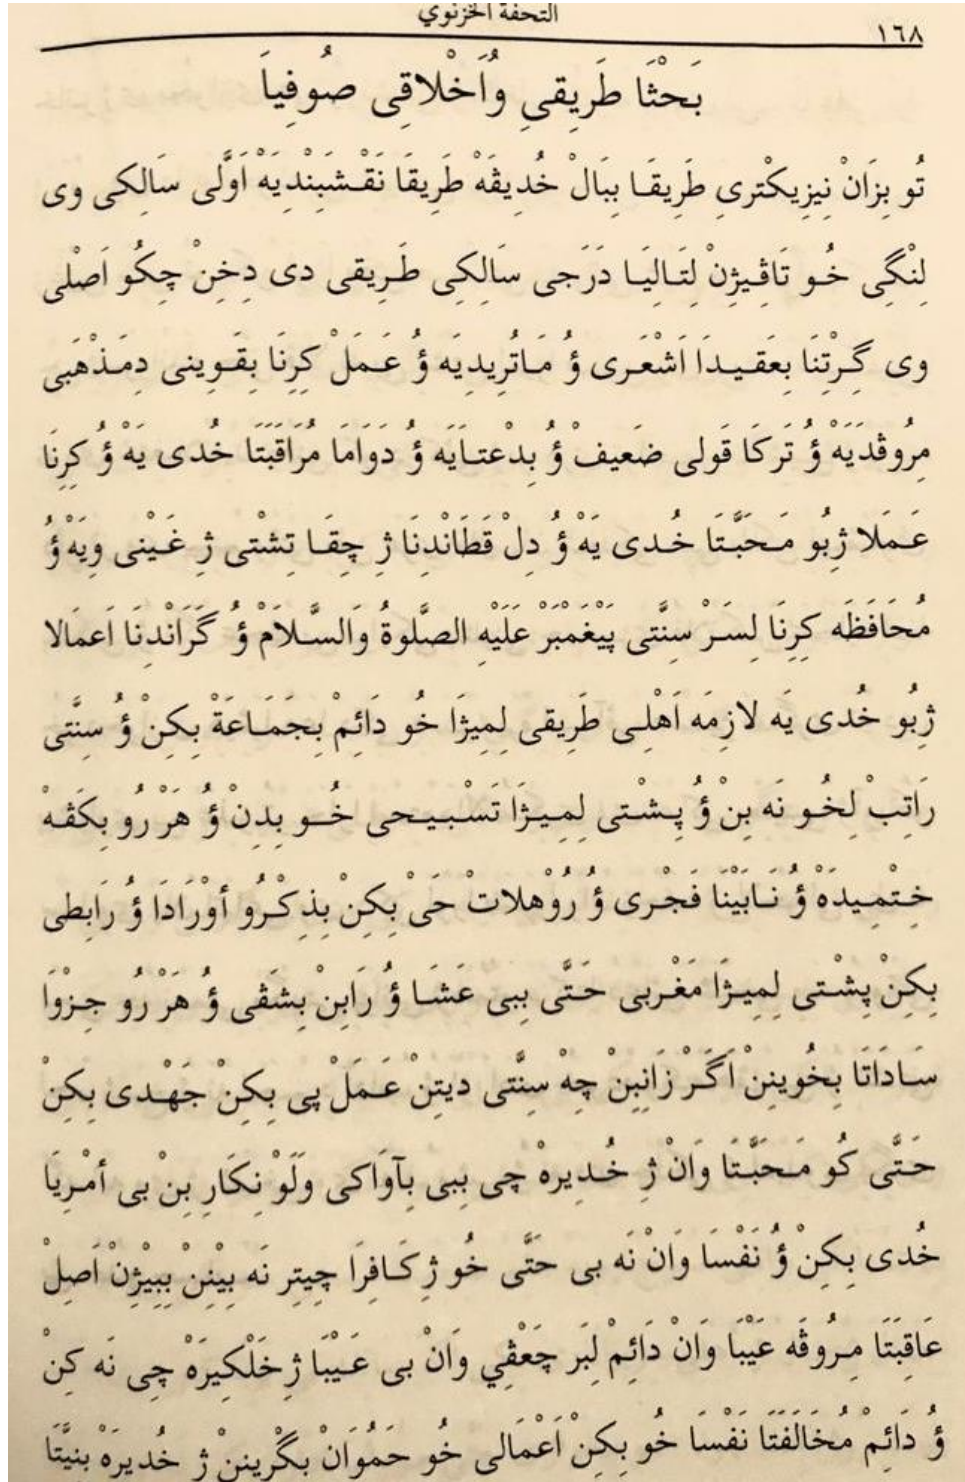 التحفة الخزنوي
١٦٨
بَحْثَا طَرِيقِي وُاَخْلاقِى صُوفِيَا
تُو بِزَانْ نِيزِيكْتِرىِ طَرِيقَا بِبَالْ خُدِيڤَهْ طَرِيقَا نَقْشبَنْدِيَهْ اَوَّلَى سَالِكِى وى
لِنْگِى خُو تَاڤِيژِنْ لِتَالِيَا دَرَجَى سَالِكِى طَرِيقى دى دِخِنْ چِكُو اَصْلى
وى گِرْتِنَا بِعَقيدَا اَشْعَرى ؤُ مَاتُرِيدِيَه ؤُ عَمَلْ كِرِنَا بِقَوِينى دِمَذْهَبى
مِرُوڤدَيَهْ ؤُ تَركَا قَولى ضَعيفْ ؤُ بِدْعتَايَه ؤُ دَوَامَا مُرَاقَبَتَا خُدى يَهْ ؤُ كِرِنَا
عَمَلا ژِبُو مَحَبَّتَا خُدى يَهْ ؤُ دِلْ قَطَانْدِنَا ژ چِقَا تِشْتى ژِ غَيْنى وِيَه ؤُ
مُحَافَظَه كِرِنَا لِسَرْ سِنَّتى پَيْغَمْبَرْ عَلَيْهِ الصَّلوةُ وَالسَّلاَمْ ؤُ گَرَانْدِنَا اَعمَالا
ژِبُو خُدى يَه لازِمَه اَهْلِى طَرِيقى لِمِيژَا خُو دَائِمْ بِجَمَاعَةْ بِكِنْ ؤُ سِنَّتى
رَاتِبْ لِخُو نَه بِنْ ؤُ پِشْتى لِمِيژَا تَسْبيحى خُو بِدِنْ ؤُ هَرْ رُو بِكَڤهْ
خِتْمِيدَهْ ؤُ نَابَيْنَا فَجْرى ؤُ رُوْهلاتْ حَىْ بِكِنْ بِذِكْرُو أوْرَادَا ؤُ رَابِطى
بِكِنْ پِشْتى لِمِيژَا مَغْرِبى حَتَّى بِبى عَشَا ؤُ رَابِنْ بِشَڤى ؤُ هَرْ رُو جِزْوَا
سَادَاتَا بِخُوينِنْ اَگَرْ زَانِبِنْ چِهْ سِنَّتى ديتِنْ عَمَلْ پى بِكِنْ جَهْدى بِكِنْ
حَتَّى كُو مَحَبَّتَا وَانْ ژِ خُدِيرهْ چى بِبى بِآوَاكى وَلَوْ نِكَارِ بِنْ بى أمْرِيَا
خُدى بِكِنْ ؤُ نَفْسَا وَانْ نَه بى حَتَّى خُو ژِ كَافِرَا چِيتِر نَه بِيْنِنْ بِبِيْژِنْ اَصِلْ
عَاقِبَتَا مِرُوڤَه عَيْبَا وَانْ دَائِمْ لِبَر چَعْڤِي وَانْ بى عَيْبَا ژِ خَلْكِيرَهْ چِى نَه كِنْ
ؤُ دَائِمْ مُخَالَفَتَا نَفْسَا خُو بِكِنْ اَعْمَالى خُو حَمُوَانْ بِگْرِينِنْ ژ خُدِيرَهْ بِنيَّتَا